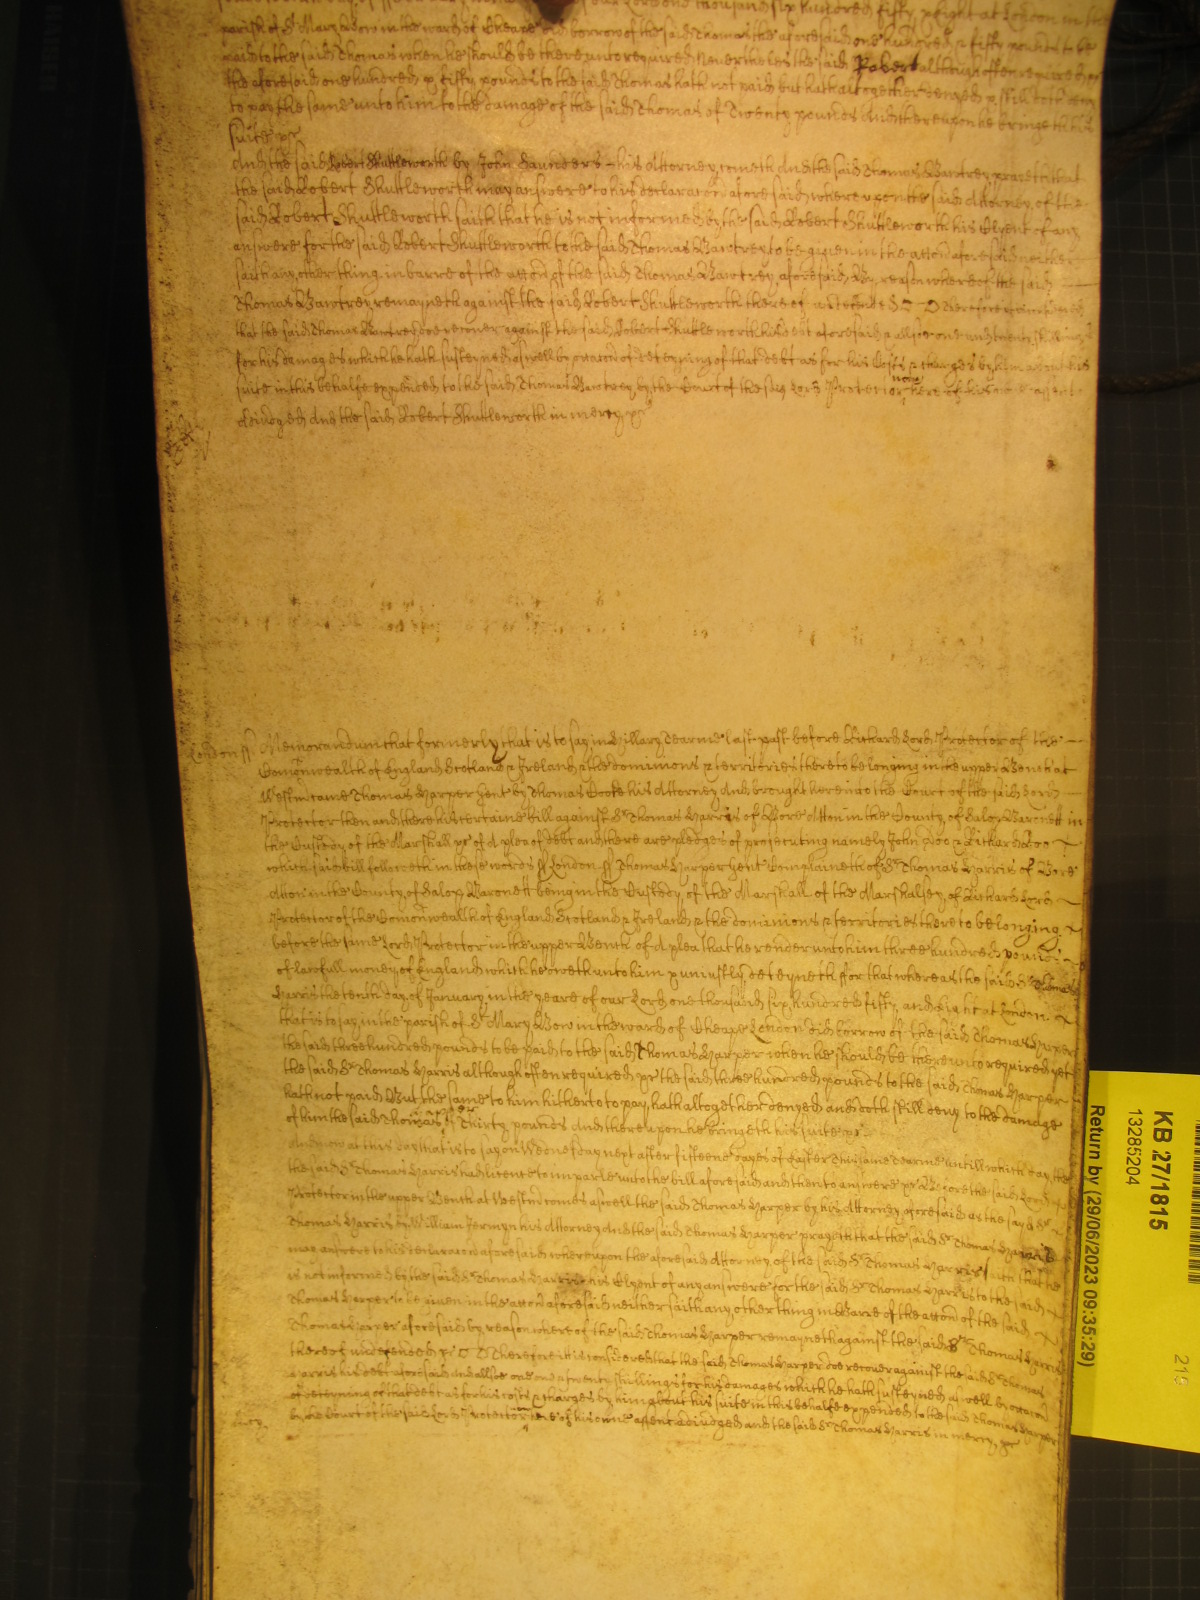 parish of St Mary Bow in the ward of Cheape did borrow of the said Thomas the aforesaid one hundred & fifty pounds to be
paid to the said Thomas when he should be thereunto required Neverthelesse the said Robert although often required
the aforesaid one hundred & fifty pounds to the said Thomas hath not paid but hath altogether denyed & still doth deny
to pay the same unto him to the damage of the said Thomas of Twenty pounds And thereupon he bringeth his
suite &c
And the said Robert Shuttleworth by John Saunders his Attorney cometh And the said Thomas Bawtrey prayeth that
the said Robert Shuttleworth may answere to his declaracon aforesaid whereupon the said Attorney of the
said Robert Shuttleworth saith that he is not informed by the said Robert Shuttleworth his Clyent of any
answere for the said Robert Shuttleworth to the said Thomas Bawtrey to be given in the accon aforesaid neither
saith any other thing in barre of the accon of the said Thomas Bawtrey aforesaid By reason whereof the said
Thomas Bawtrey remayneth against the said Robert Shuttleworth thereof undefended &c Therefore it is considered
that the said Thomas Bawtrey doe recover against the said Robert Shuttleworth his debt aforesaid & allsoe one and twenty shillings
for his damages which he hath susteyned aswell by occacon of deteyning of that debt as for his Costs & charges by him about his
suite in this behalfe expended to the said Thomas Bawtrey by the Court of the said Lord Protector now here of his owne assent
adiudged And the said Robert Shuttleworth in mercy &c
London ss Memorandum that formerly that is to say in Hillary Tearme last past before Richard Lord Protector of the
Comonwealth of England Scotland & Ireland & the dominions & territories thereto belonging in the upper Bench at
Westm came Thomas Harper gent by Thomas Cooke his Attorney And brought here into the Court of the said Lord
Protector then and there his certaine bill against Sr Thomas Harris of Bore Atton in the County of Salop Baronett in
the Custody of the Marshall &c of a plea of debt and there are pledges of prosecuting namely John Doo & Richard Roo
which said bill followeth in these words ss London ss Thomas Harper gent Complaineth of Sr Thomas Harris of Bore
Atton in the County of Salop Baronett being in the Custody of the Marshall of the Marshalsey of Richard Lord
Protector of the Comonwealth of England Scotland & Ireland & the dominions & territories thereto belonging
before the same Lord Protector in the upper Bench of A plea that he render unto him three hundred pounds
of lawfull money of England which he oweth unto him & uniustly deteyneth for that whereas the said Sr Thomas
Harris the tenth day of January in the yeare of our Lord one thousand six hundred fifty and Eight at London
that is to say in the parish of St Mary Bow in the ward of Cheape London did borrow of the said Thomas Harper
the said three hundred pounds to be paid to the said Thomas Harper when he should be thereunto required yet
the said Sr Thomas Harris although often required &c the said three hundred pounds to the said Thomas Harper
hath not paid But the same to him hitherto to pay hath altogether denyed and doth still deny to the damage
of him the said Thomas Thirty pounds And thereupon he bringeth his suite &c
And now at this day that is to say on Wednesday next after fifteene dayes of Easter this same Tearme untill which day the
the said Sr Thomas Harris had licence to imparle unto the bill aforesaid and then to answere &c Before the said Lord
Protector in the upper Bench at Westm comes aswell the said Thomas Harper by his Attorney aforesaid as the sayd Sr
Thomas Harris by William Jermyn his Attorney And the said Thomas Harper prayeth that the said Sr Thomas Harris
may answere to his declaracon aforesaid whereupon the aforesaid Attorney of the said Sr Thomas Harris saith that he
is not informed by the said Sr Thomas Harris his Clyent of any answere for the said Sr Thomas Harris to the said
Thomas Harper to be given in the accon aforesaid neither saith any other thing in Barre of the accon of the said
Thomas Harper aforesaid by reason whereof the said Thomas Harper remayneth against the said Sr Thomas Harris
thereof undefended &c Therefore it is considered that the said Thomas Harper doe recover against the said Sr Thomas
Harris his debt aforesaid and allsoe one and twenty shillings for his damages which he hath susteyned as well by occacon
of deteyning of that debt as for his costs & charges by him about his suite in this behalfe expended to the said Thomas Harper
by the Court of the said Lord Protector now here of his owne assent adiudged and the said Sr Thomas Harris in mercy &c
KB 27/1815
13285204
Return by (29/06/2023 09:35:29)